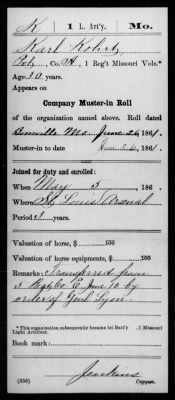 K | 1 L. Art'y. | Mo.
Karl Kohrtz
Pvt, Co. A, 1 Reg't Missouri Vols.*
Age 20 years.
Appears on
Company Muster-in Roll
of the organization named above. Roll dated
Boonville Mo. June 26, 1861.
Muster-in to date June 26, 1861.
Joined for duty and enrolled:
When May 5, 186 .
Where St Louis Arsenal
Period 3 years.
Valuation of horse, $ 100
Valuation of horse equipments, $ 100
Remarks: Transferred from
3 Regt Co. E, June 10 by
order of Genl Lyon.
*This organization subsequently became 1st Batt'y 1 Missouri
Light Artillery.
Book mark:
Jenkins
(356) Copyist.